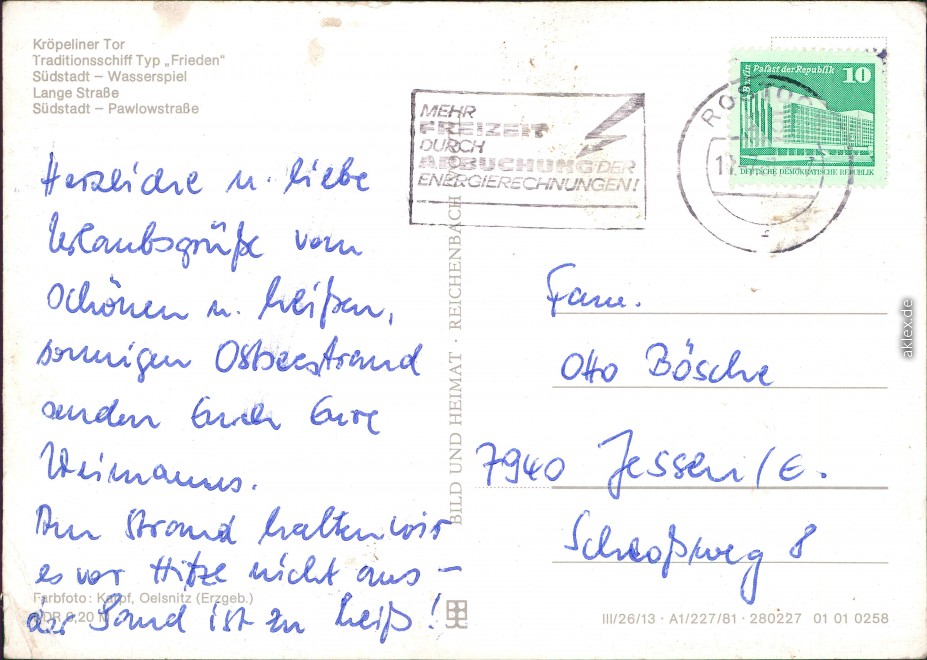 Kröpeliner Tor
Traditionsschiff Typ „Frieden“
Südstadt – Wasserspiel
Lange Straße
Südstadt – Pawlowstraße
MEHR
FREIZEIT
DURCH
ABBUCHUNG DER
ENERGIERECHNUNGEN!
ROSTOC
Berlin Palast der Republik 10
DEUTSCHE DEMOKRATISCHE REPUBLIK
Herzliche u. liebe
Urlaubsgrüße vom
schönen u. heißen,
sonnigen Ostseestrand
senden Euch Eure
Weimanns.
Am Strand halten wir
es vor Hitze nicht aus –
der Sand ist zu heiß!
BILD UND HEIMAT · REICHENBACH
Fam.
Otto Bösche
7940 Jessen/E.
Schloßweg 8
Farbfoto: Karpf, Oelsnitz (Erzgeb.)
DDR 0,20 M
III/26/13 · A1/227/81 · 280227 01 01 0258
aklex.de